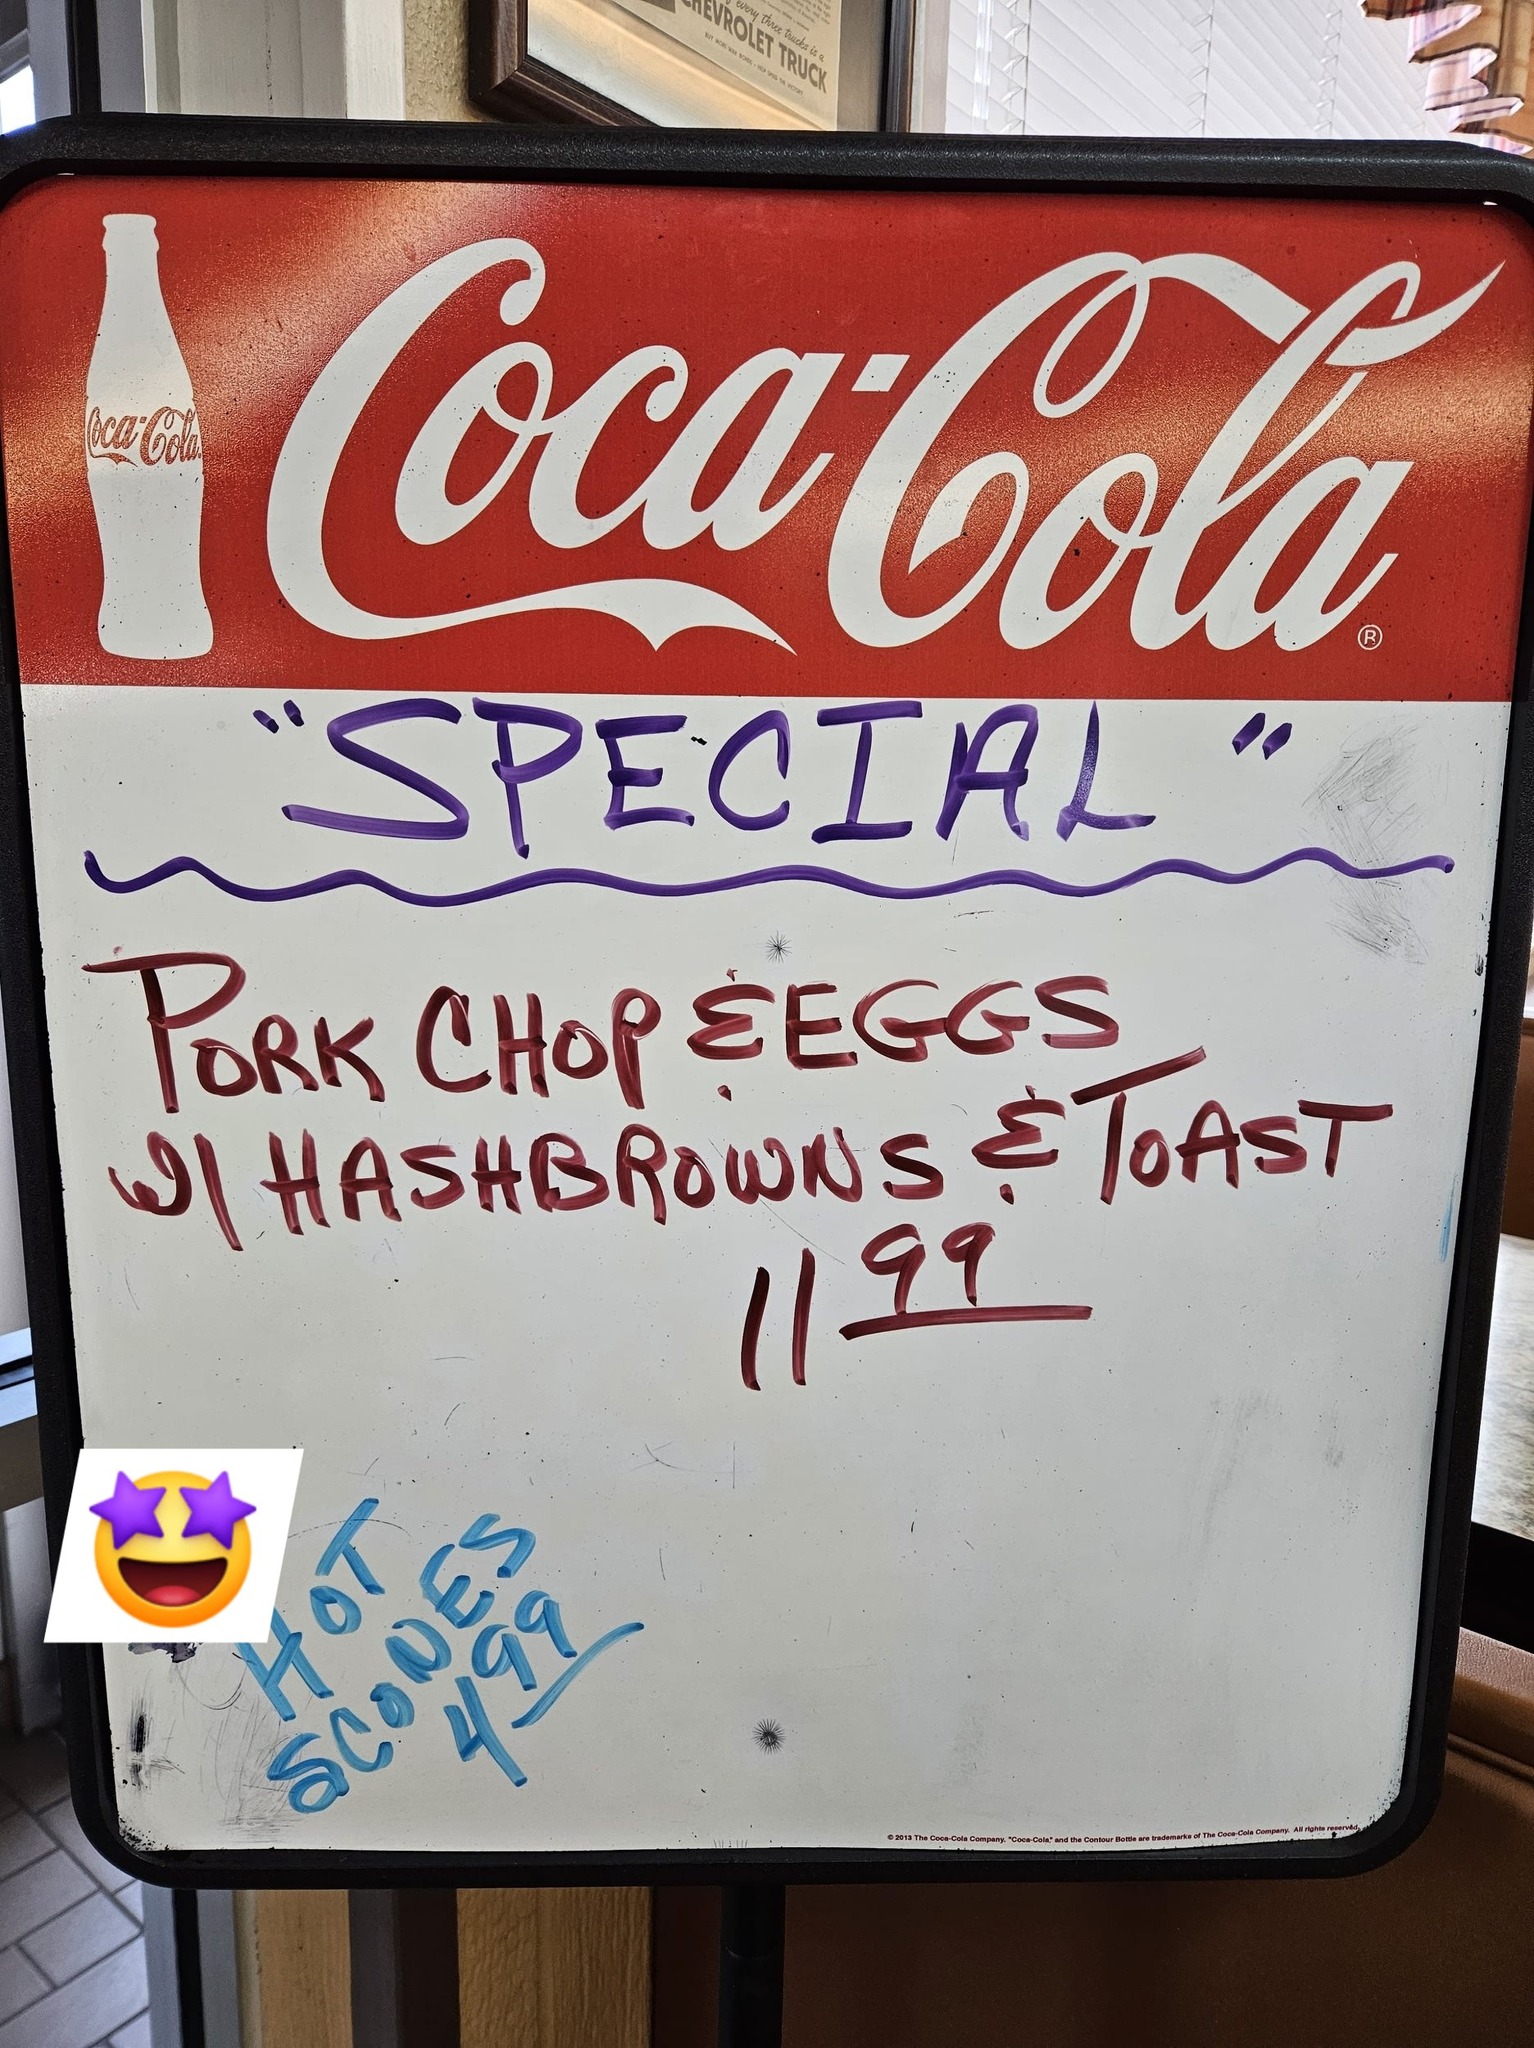 every three trucks is a
CHEVROLET TRUCK
BUY MORE WAR BONDS - HELP SPEED THE VICTORY
Coca-Cola
Coca-Cola®
"SPECIAL"
PORK CHOP & EGGS
W/ HASHBROWNS & TOAST
11 99
HOT
SCONES
4 99
© 2013 The Coca-Cola Company. "Coca-Cola," and the Contour Bottle are trademarks of The Coca-Cola Company. All rights reserved.